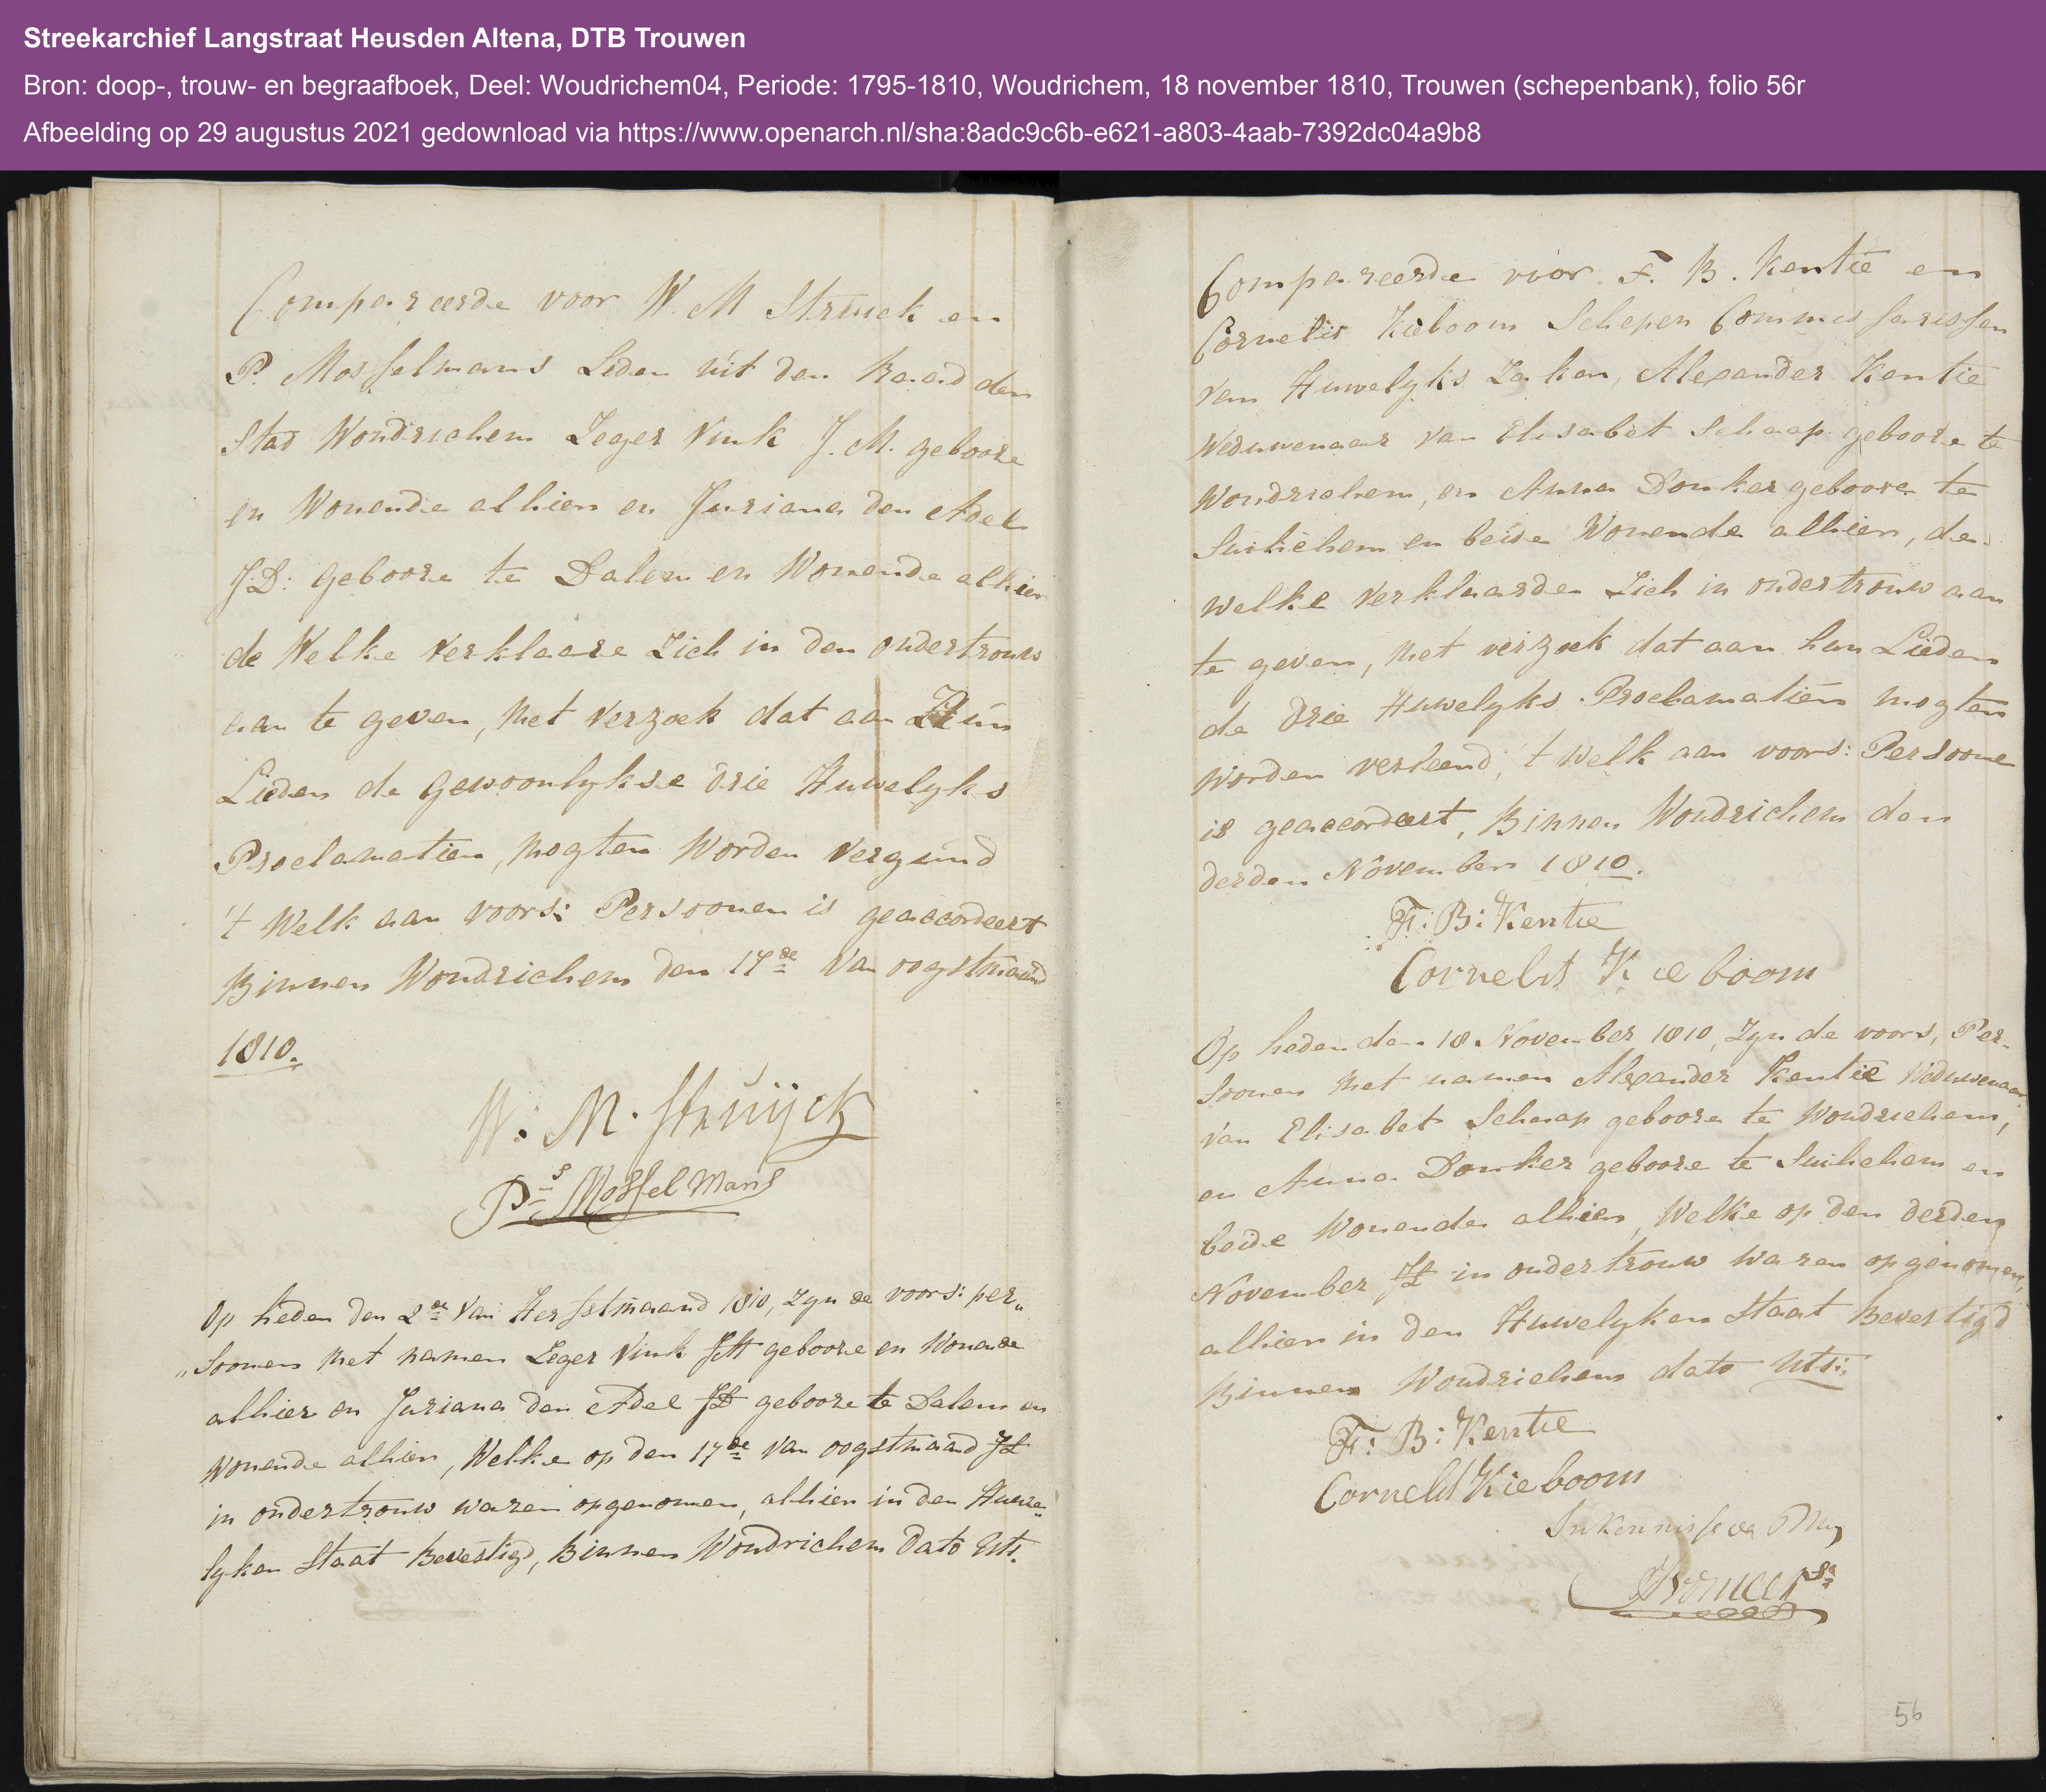 Streekarchief Langstraat Heusden Altena, DTB Trouwen
Bron: doop-, trouw- en begraafboek, Deel: Woudrichem04, Periode: 1795-1810, Woudrichem, 18 november 1810, Trouwen (schepenbank), folio 56r
Afbeelding op 29 augustus 2021 gedownload via https://www.openarch.nl/sha:8adc9c6b-e621-a803-4aab-7392dc04a9b8
Compareerde voor W. M Struick en
P. Mosselmans Leden uit den Raad den
Stad Woudrichem Zeger Vink J. M. geboore
en Wonende alhier en Juriana den Adel
J:D: geboore te Dalem en Wonende alhier
de Welke verklaare Zich in den ondertrouw
aan te geven, Met verzoek dat aan Hun
Lieden de gewoonlykse drie Huwelyks
Proclamatien, mogten Worden vergund
't Welk aan voors: Persoonen is geaccordeert
Binnen Woudrichem den 17de Van oogstmaand
1810.
W. M. Struijck
Ps Mosselmans
Op heden den 2de Van Herfstmaand 1810, Zyn de voors: per„
„Soonen Met namen Zeger Vink JM geboore en Wonende
alhier en Juriana den Adel JD geboore te Dalem en
Wonende alhier, Welke op den 17de Van oogstmaand JL
in ondertrouw waren opgenomen, alhier in den Huwe„
lyken Staat Bevestigd, Binnen Woudrichem dato Uts.
Compareerde voor F. B. Kentie en
Cornelis Kieboom Schepen Commissarissen
van Huwelyks Zaken, Alexander Kentie
Weduwenaar van Elisabet Schaap geboore te
Woudrichem, en Anna Donker geboore te
Suilichem en beide Wonende alhier, de
welke verklaarden Zich in ondertrouw aan
te geven, Met verzoek dat aan hun Lieden
de drie Huwelyks Proclamatien mogten
Worden verleend, 't Welk aan voors: Persoone
is geaccordeert, Binnen Woudrichem den
derden November 1810.
F: B: Kentie
Cornelis Kieboom
Op heden den 18 November 1810, Zyn de voors, Per-
Soonen Met namen Alexander Kentie Weduwenaar
Van Elisabet Schaap geboore te Woudrichem,
en Anna Donker geboore te Suilichem en
beide Wonende alhier, Welke op den derden
November JL in ondertrouw Waren opgenomen,
alhier in den Huwelyken Staat Bevestigd
Binnen Woudrichem dato Uts:
F: B: Kentie
Cornelis Kieboom
In Kennisse va My
56